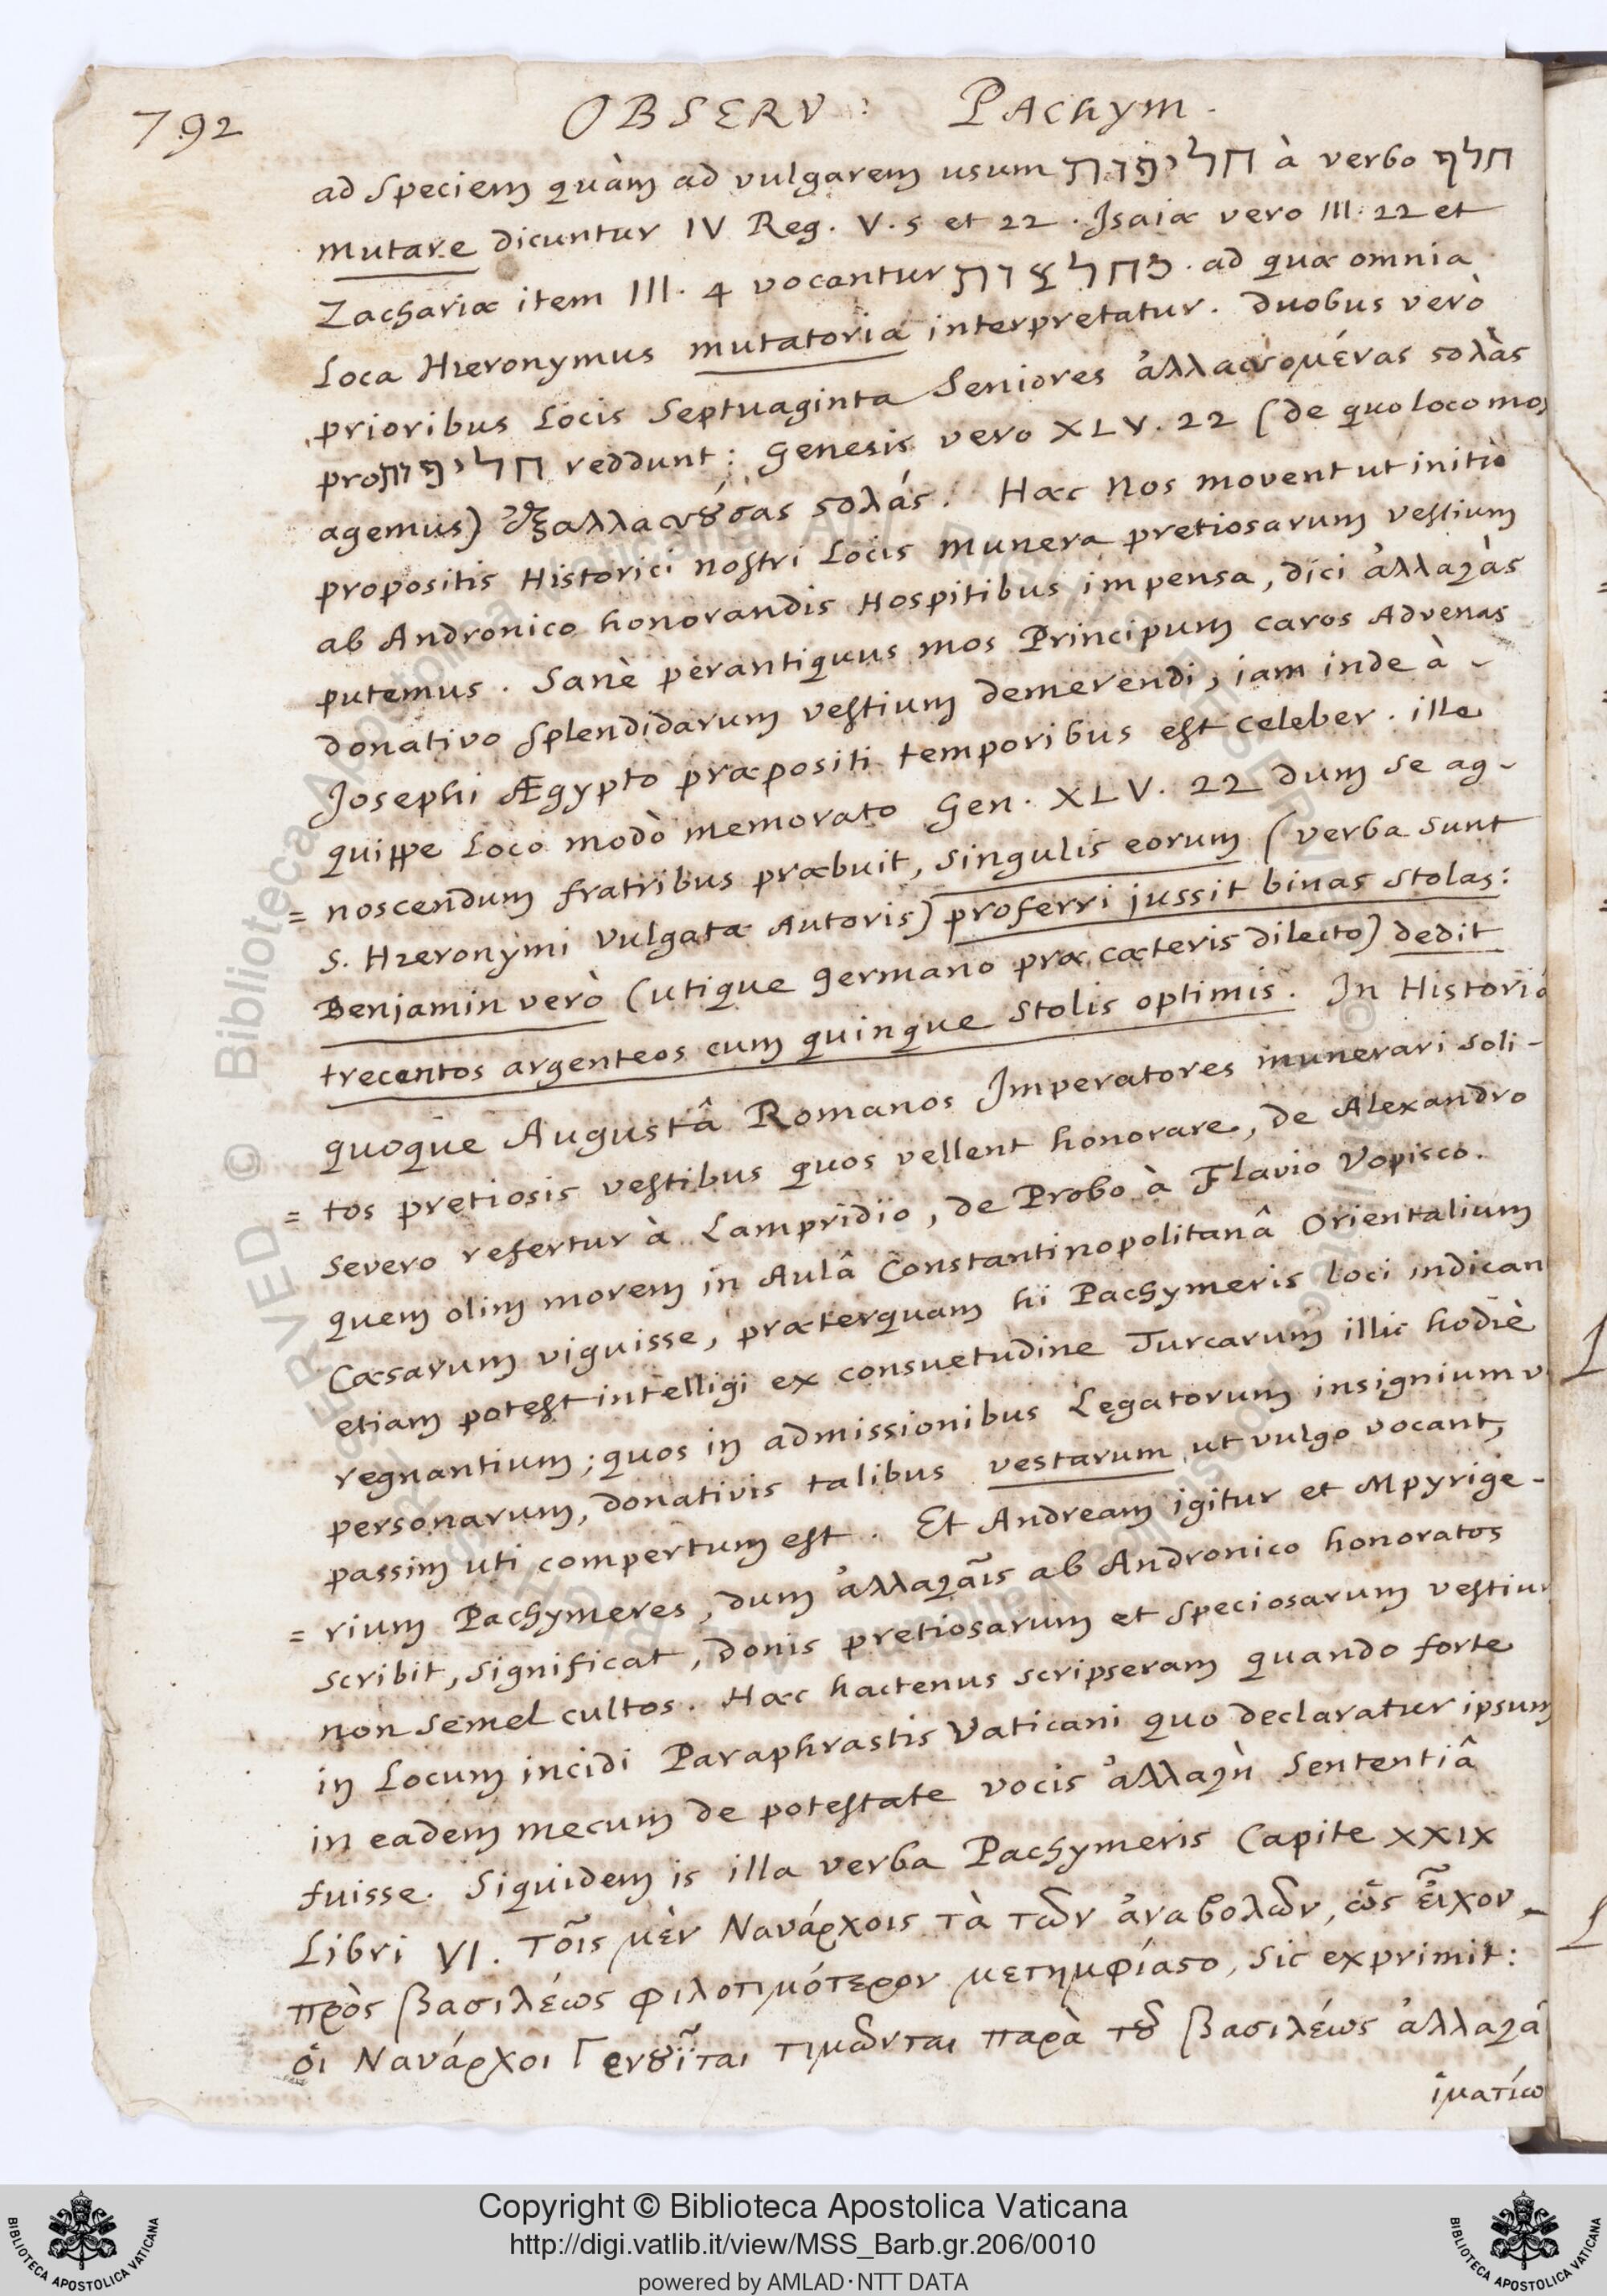 792 OBSERV : PAchym .
ad speciem quàm ad vulgarem usum חליפות à verbo חלף
mutare dicuntur IV Reg. V. 5 et 22 . Isaiæ vero III. 22 et
Zachariæ item III. 4 vocantur מחלצות . ad quæ omnia
Loca Hieronymus mutatoria interpretatur . Duobus verò
prioribus Locis Septuaginta Seniores ἀλλασσομένας ϛολὰς
pro חליפות reddunt ; Genesis vero XLV. 22 (de quo loco mox
agemus) ἐξαλλασσούσας ϛολάς . Hæc Nos movent ut initiò
propositis Historici nostri Locis munera pretiosarum vestium
ab Andronico honorandis Hospitibus impensa, dici ἀλλαγὰς
putemus . Sanè perantiquus mos Principum caros Advenas
donativo splendidarum vestium demerendi, iam inde à -
Josephi Ægypto præpositi temporibus est celeber . ille
quippe Loco modò memorato Gen. XLV. 22 dum se ag-
= noscendum fratribus præbuit, singulis eorum (verba sunt
S. Hieronymi Vulgatæ Autoris) proferri jussit binas stolas :
Benjamin verò (utique germano præ cæteris dilecto) dedit
trecentos argenteos cum quinque stolis optimis . In Historiâ
quoque Augustâ Romanos Imperatores munerari soli-
= tos pretiosis vestibus quos vellent honorare, de Alexandro
Severo refertur à Lampridio, de Probo à Flavio Vopisco .
quem olim morem in Aulâ Constantinopolitanâ Orientalium
Cæsarum viguisse, præterquam hi Pachymeris loci indican
etiam potest intelligi ex consuetudine Turcarum illic hodiè
regnantium ; quos in admissionibus Legatorum insignium v
personarum, donativis talibus vestarum ut vulgo vocant,
passim uti compertum est . Et Andream igitur et Mpyrige-
= rium Pachymeres, dum ἀλλαγαῖς ab Andronico honoratos
scribit, significat, donis pretiosarum et speciosarum vestium
non semel cultos . Hæc hactenus scripseram quando forte
in Locum incidi Paraphrastis Vaticani quo declaratur ipsum
in eadem mecum de potestate vocis ἀλλαγὴ sententiâ
fuisse . Siquidem is illa verba Pachymeris Capite XXIX
Libri VI . τοῖς μὲν Ναυάρχοις τὰ τῶν ἀναβολῶν, ὡς εἶχον -
πρὸς βασιλέως φιλοτιμότερον μετημφίαϛο, sic exprimit :
οἱ Ναυάρχοι Γενουῖται τιμῶνται παρὰ τοῦ βασιλέως ἀλλαγὰ
ἱματίω
Copyright © Biblioteca Apostolica Vaticana
http://digi.vatlib.it/view/MSS_Barb.gr.206/0010
powered by AMLAD·NTT DATA
BIBLIOTECA APOSTOLICA VATICANA
BIBLIOTECA APOSTOLICA VATICANA